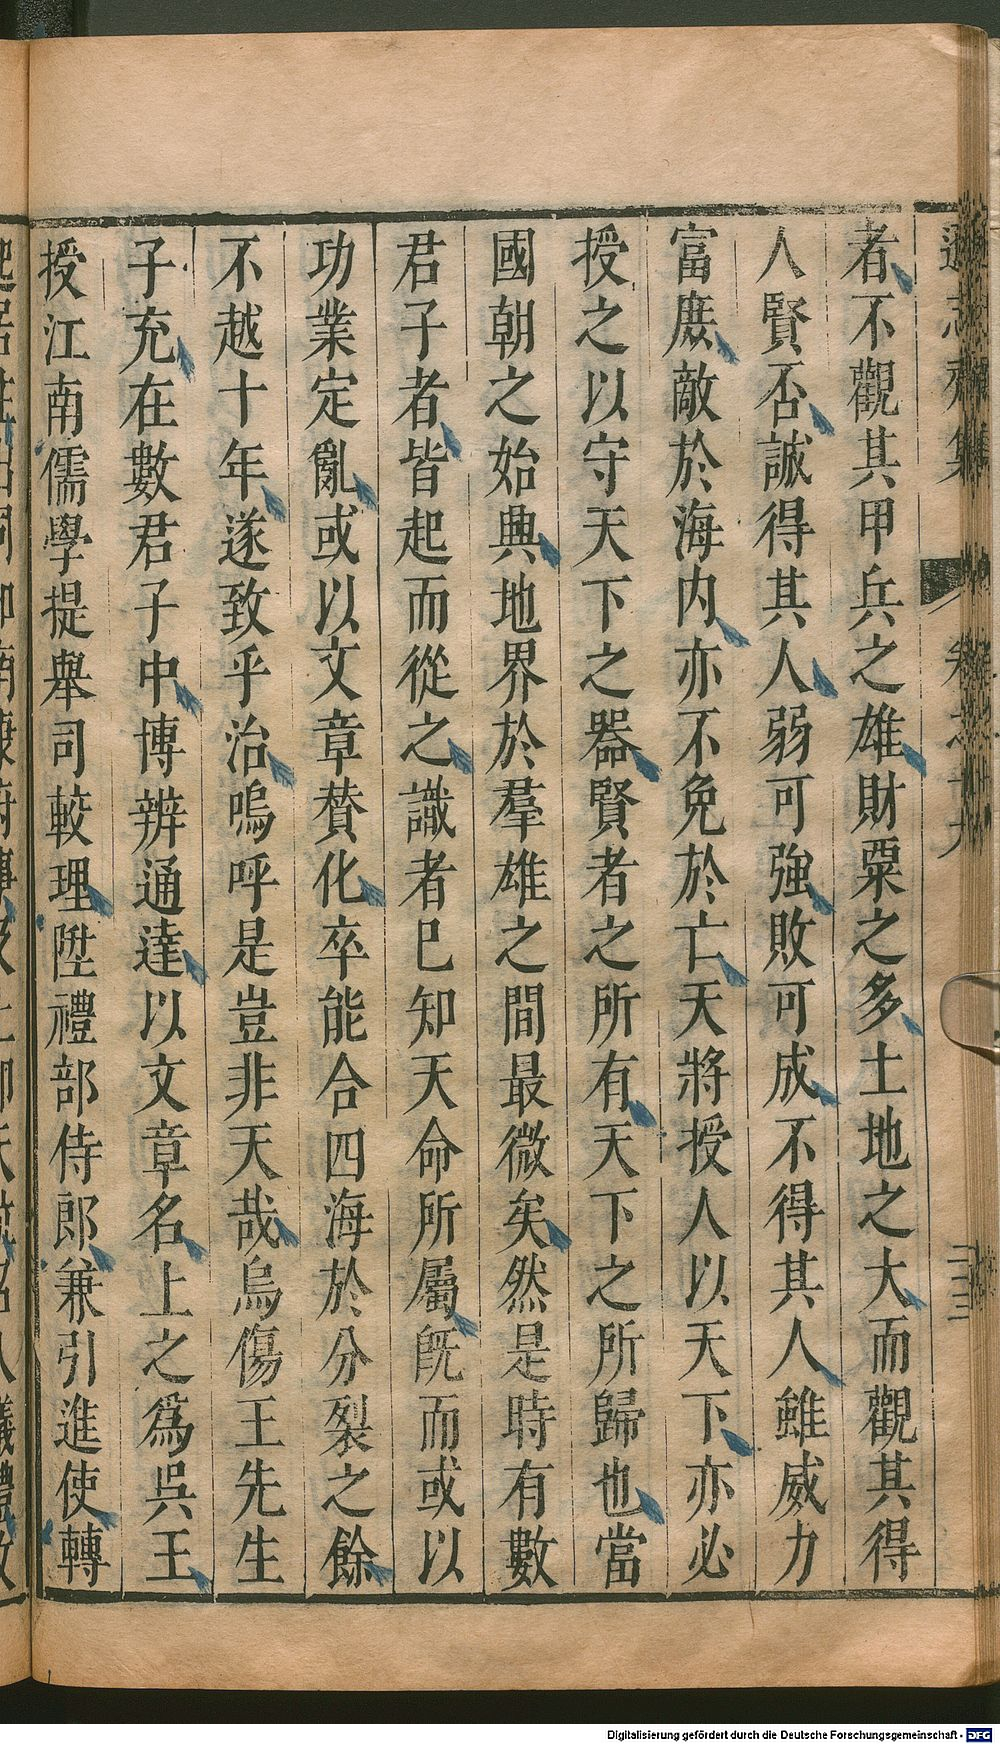 遜志齋集 卷之十九 二三
者不觀其甲兵之雄財粟之多土地之大而觀其得
人賢否誠得其人弱可強敗可成不得其人雖威力
富庶敵於海内亦不免於亡天將授人以天下亦必
授之以守天下之器賢者之所有天下之所歸也當
國朝之始興地界於羣雄之間最微矣然是時有數
君子者皆起而從之識者已知天命所屬旣而或以
功業定亂或以文章賛化卒能合四海於分裂之餘
不越十年遂致乎治嗚呼是豈非天哉烏傷王先生
子充在數君子中博辨通達以文章名上之為吳王
授江南儒學提舉司較理陞禮部侍郎兼引進使轉
Digitalisierung gefördert durch die Deutsche Forschungsgemeinschaft - DFG